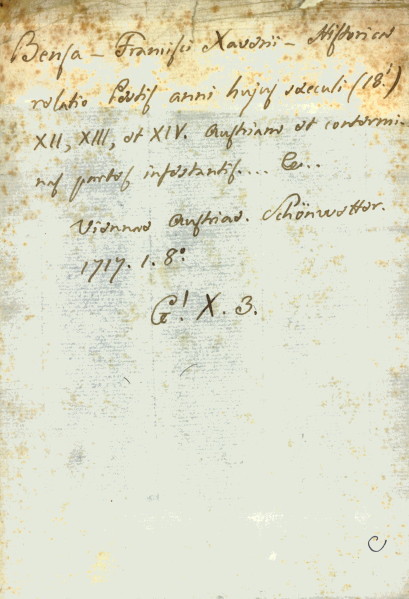 Bensa - Francisci Xaverii - Historica
relatio Pestis anni hujus saeculi (18!)
XII, XIII, et XIV. Austriam et contermi-
nas partes infestantis.... &..
Viennae Austriae. Schönwetter.
1717. 1. 8º
G! X. 3.
C